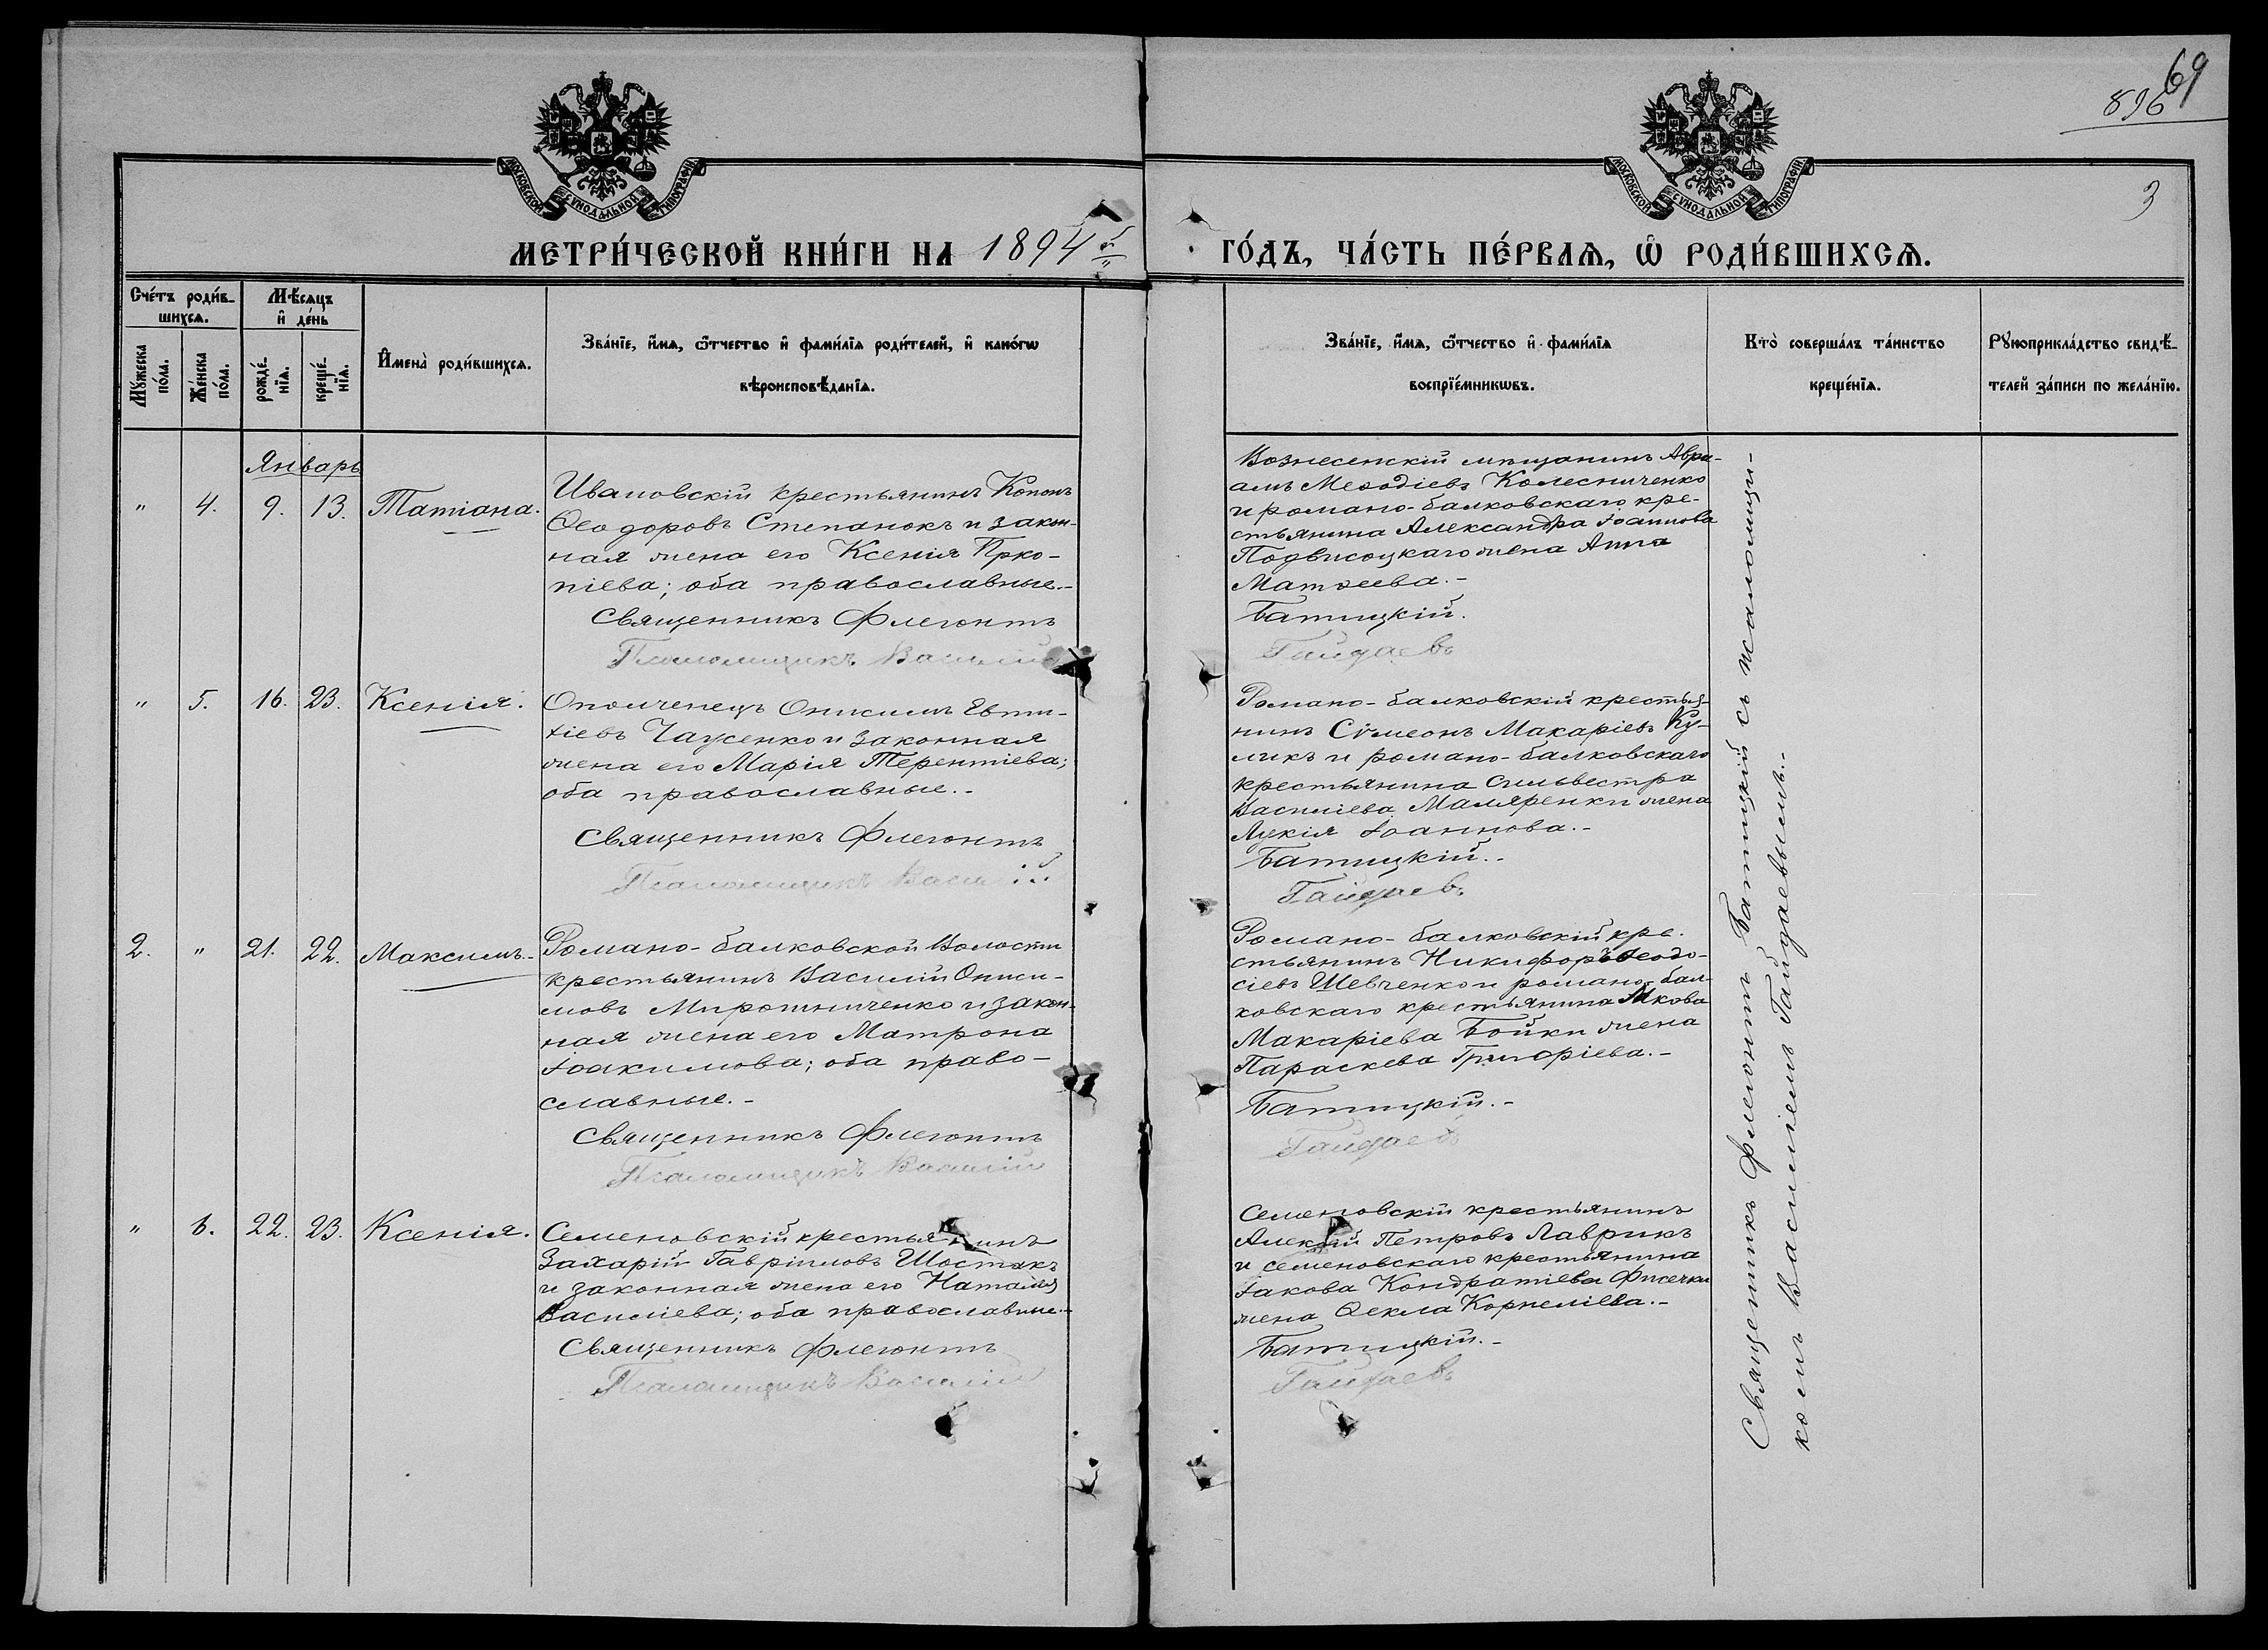 69
896
3
МОСКОВСКОЙ СѴНОДАЛЬНОЙ ТИПОГРАФІИ
МОСКОВСКОЙ СѴНОДАЛЬНОЙ ТИПОГРАФІИ
МЕТРИ́ЧЕСКОЙ КНИ́ГИ НА 1894й
ГО́ДЪ, ЧА́СТЬ ПЕ́РВАѦ, Ѡ҆ РОДИ́ВШИХСѦ.
Сче́тъ роди́в-
шихсѧ.
Мѣ́сѧцъ
и҆ де́нь
Мꙋ́жеска
по́ла.
Же́нска
по́ла.
рожде́-
нїѧ.
креще́-
нїѧ.
И҆мена̀ роди́вшихсѧ.
Зва́нїе, и҆́мѧ, ѻ҆́тчество и҆ фами́лїѧ роди́телей, и҆ како́гѡ
вѣроисповѣ́данїѧ.
Зва́нїе, и҆́мѧ, ѻ҆́тчество и҆ фами́лїѧ
воспрїе́мникѡвъ.
Кто̀ соверша́лъ та́инство
креще́нїѧ.
Рꙋкоприкла́дство свидѣ́-
телей за́писи по жела́нїю.
Январь
" 4. 9. 13. Татіана.
Ивановскій крестьянинъ Кононъ
Ѳеодоровъ Степанокъ и закон-
ная жена его Ксенія Прко-
піева; оба православные.-
Священникъ Флегонтъ
Псаломщикъ Василій
Вознесенскій мѣщанинъ Авра-
амъ Меѳодіевъ Колесниченко
и романо-балковскаго кре-
стьянина Александра Іоаннова
Подвисоцкаго жена Анна
Матѳеева.-
Батицкій.
Гайдаевъ
" 5. 16. 23. Ксенія.
Ополченецъ Онисимъ Евти-
хіевъ Чаусенко и законная
жена его Марія Терентіева;
оба православные.-
Священникъ Флегонтъ
Псаломщикъ Василій
Романо-балковскій крестья-
нинъ Сѵмеонъ Макаріевъ Ку-
ликъ и романо-балковскаго
крестьянина Сильвестра
Василіева Маляренки жена
Лукія Іоаннова.-
Батицкій.-
Гайдаевъ
2. " 21. 22. Максимъ.-
Романо-балковской Волости
крестьянинъ Василій Ониси-
мовъ Мирошниченко и закон-
ная жена его Матрона
Іоакимова; оба право-
славные.-
Священникъ Флегонтъ
Псаломщикъ Василій
Романо-балковскій кре-
стьянинъ Никифоръ Ѳеодо-
сіевъ Шевченко и романо-бал-
ковскаго крестьянина Якова
Макаріева Бойки жена
Параскева Григоріева.-
Батицкій.-
Гайдаевъ
" 6. 22. 23. Ксенія.
Семеновскій крестьянинъ
Захарій Гавріиловъ Шостакъ
и законная жена его Наталія
Василіева; оба православные.-
Священникъ Флегонтъ
Псаломщикъ Василій
Семеновскій крестьянинъ
Петровъ Лаврикъ
и семеновскаго крестьянина
Іакова Кондратіева Фисечки
жена Ѳекла Корнеліева.-
Батицкій.-
Гайдаевъ
Священникъ Флегонтъ Батицкій съ псаломщи-
комъ Василіемъ Гайдаевымъ.-